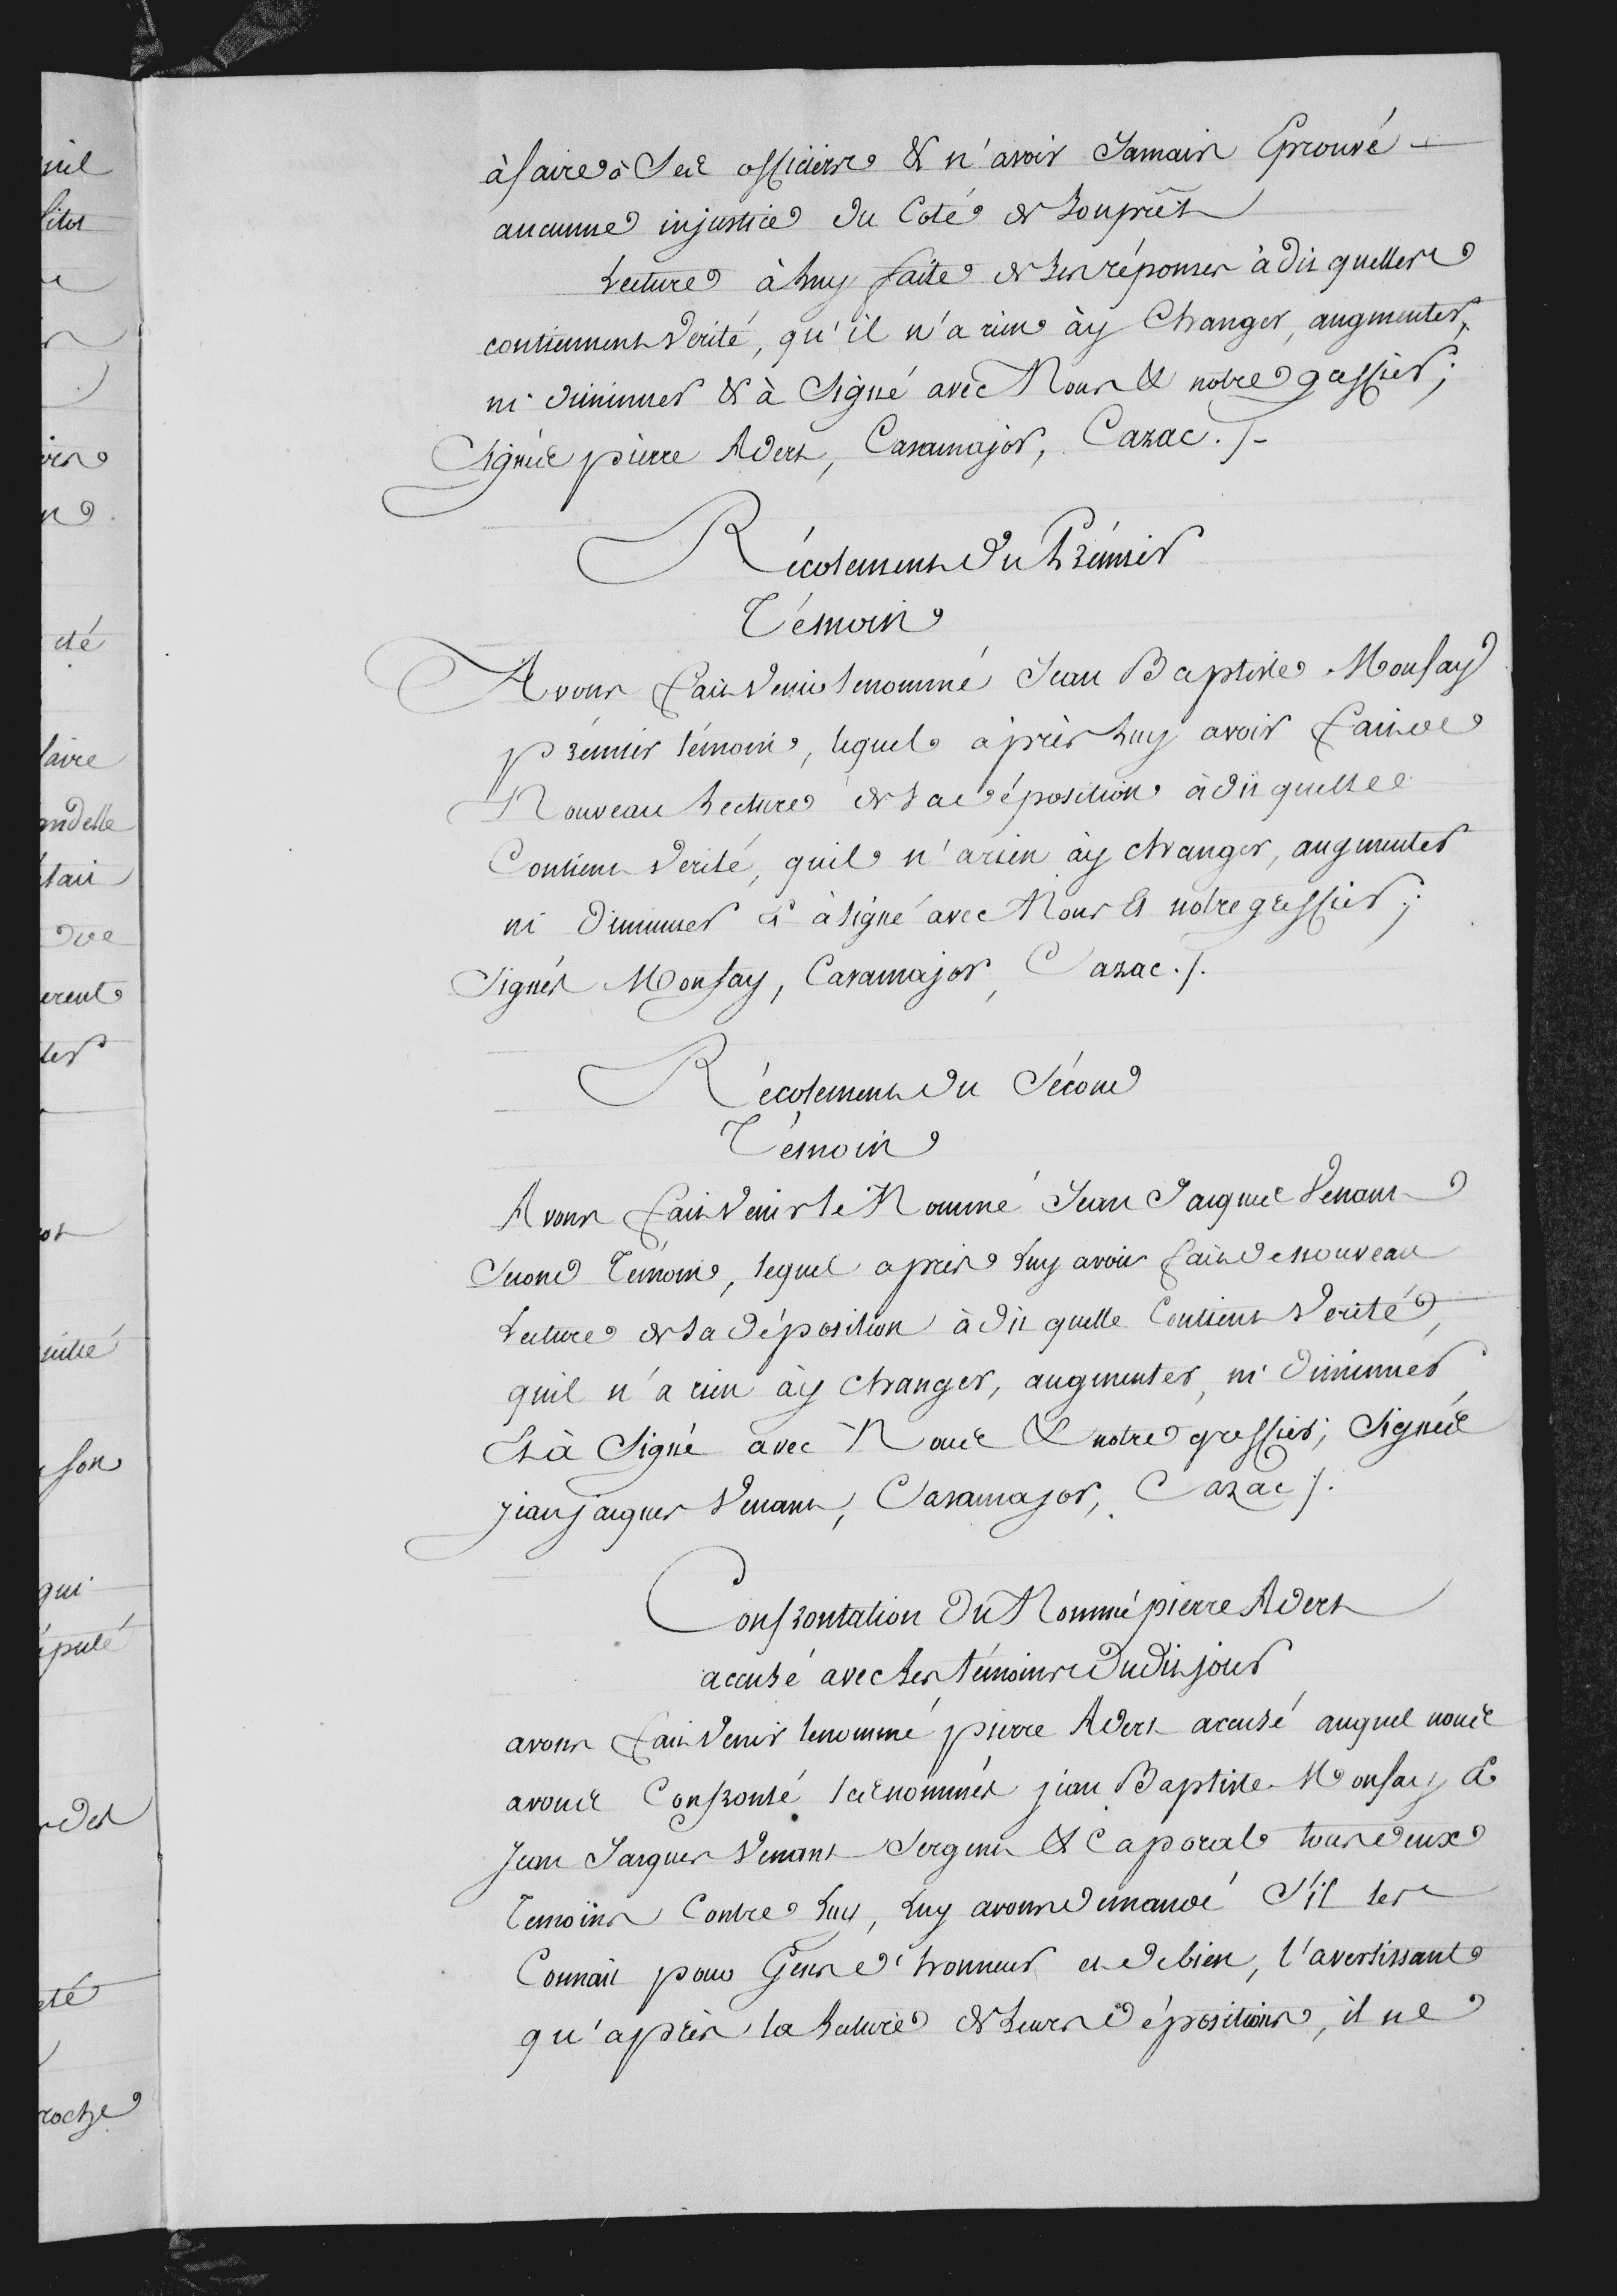 à faire à Ses officiers & n'avoir Jamais Eprouvé
aucunne injustice du Coté de Son prêt
Lecture à Luy faite de Ses réponses à dit quelles
contiennent Verité, qu'il n'a rien ày Changer, augmenter,
ni diminuer & à Signé avec Nous & notre greffier;
Signés pierre Adert, Casamajor, Cazac./.
Récolement du Prémier
Témoin
Avons fait Venir le nommé Jean Baptiste Monfay
prémier témoin, lequel après Luy avoir fait de
Nouveau Lecture de Sa déposition à dit quelle
Contient Verité, quil n'a rien ày changer, augmenter
ni diminuer & à signé avec Nous et notre greffier;
Signés Monfay, Casamajor, Cazac./.
Récolement du Sécond
Témoin
Avons fait Venir le Nommé Jean Jacques Venant
Second Témoin, lequel après Luy avoir fait de nouveau
Lecture de Sa déposition à dit quelle Contient Verité,
quil n'a rien ày changer, augmenter, ni diminuer
Et à Signé avec Nous & notre greffier; Signés
jean jacques Venant, Casamajor, Cazac /.
Confrontation du Nommé pierre Adert
accusé avec Les témoins dudit jour
avons fait Venir le nommé pierre Adert accusé auquel nous
avons Confronté les nommés jean Baptiste Monfay &
Jean Jacques Venant Sergent & Caporal tous deux
Temoins Contre Luy, Luy avons demandé S'il les
Connait pour Gens d'honneur et de bien, l'avertissant
qu'après la Lecture de Leurs dépositions, il ne
nil
été
faire
andelle
était
erent
son
qui
député
des